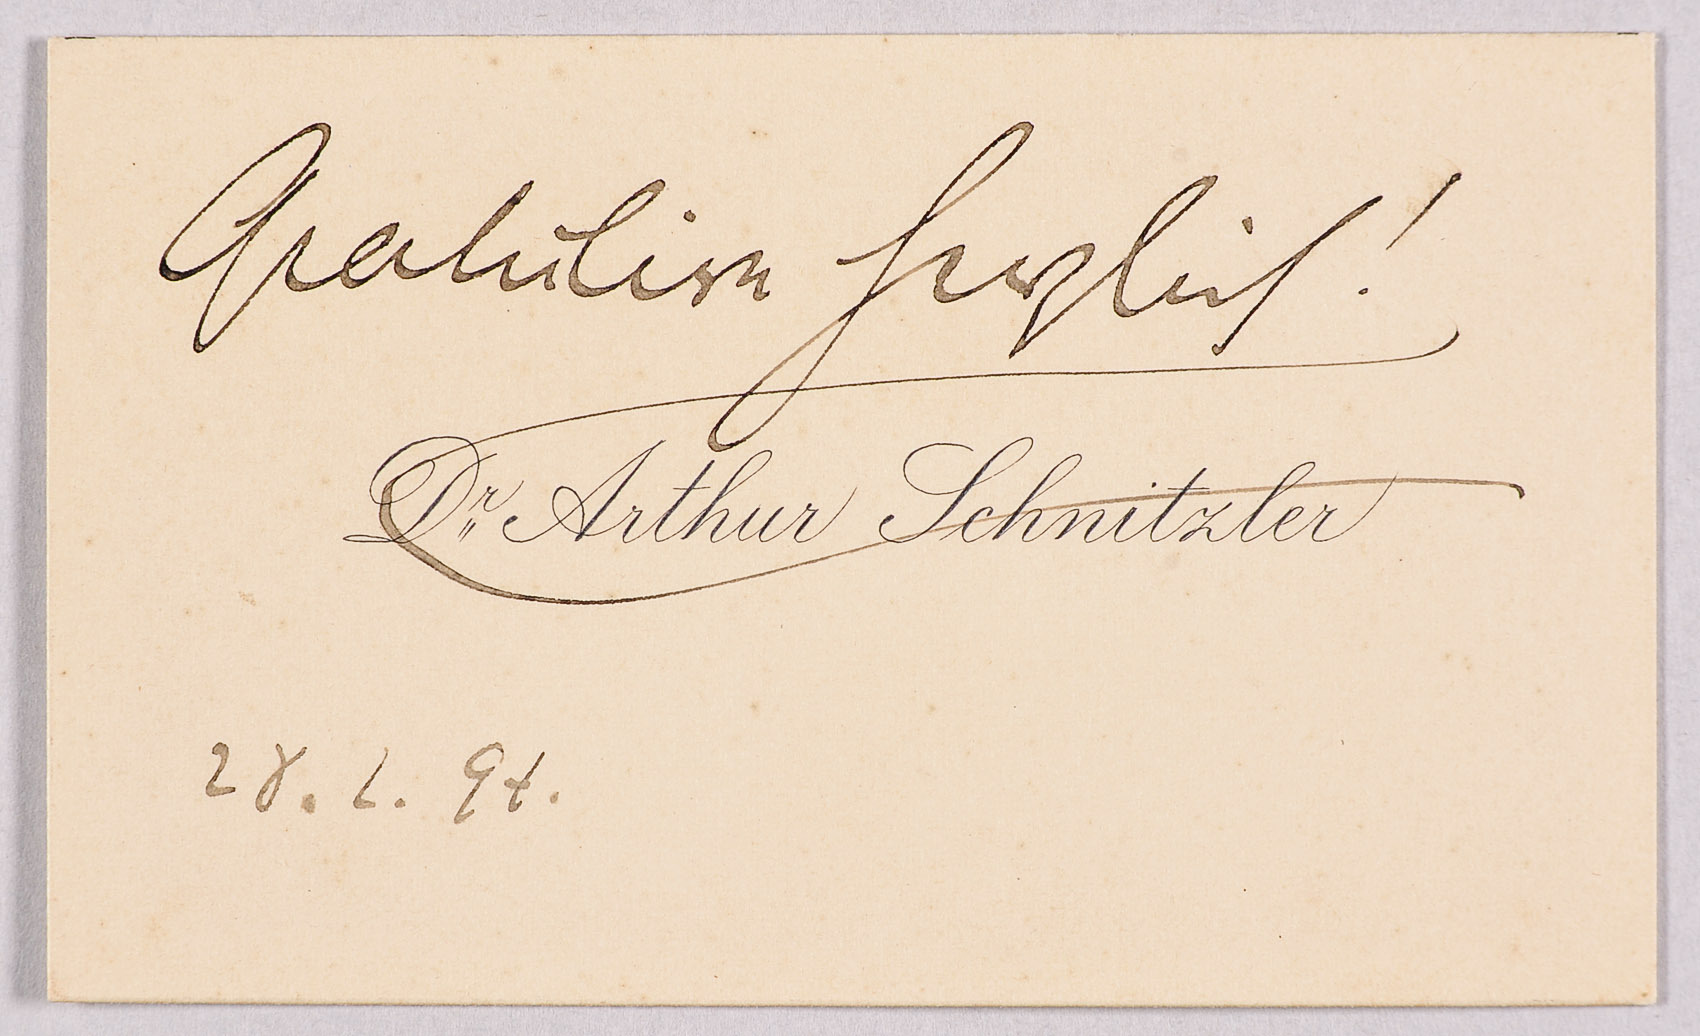 Gratulire herzlich!
Dr. Arthur Schnitzler
28. 2. 94.